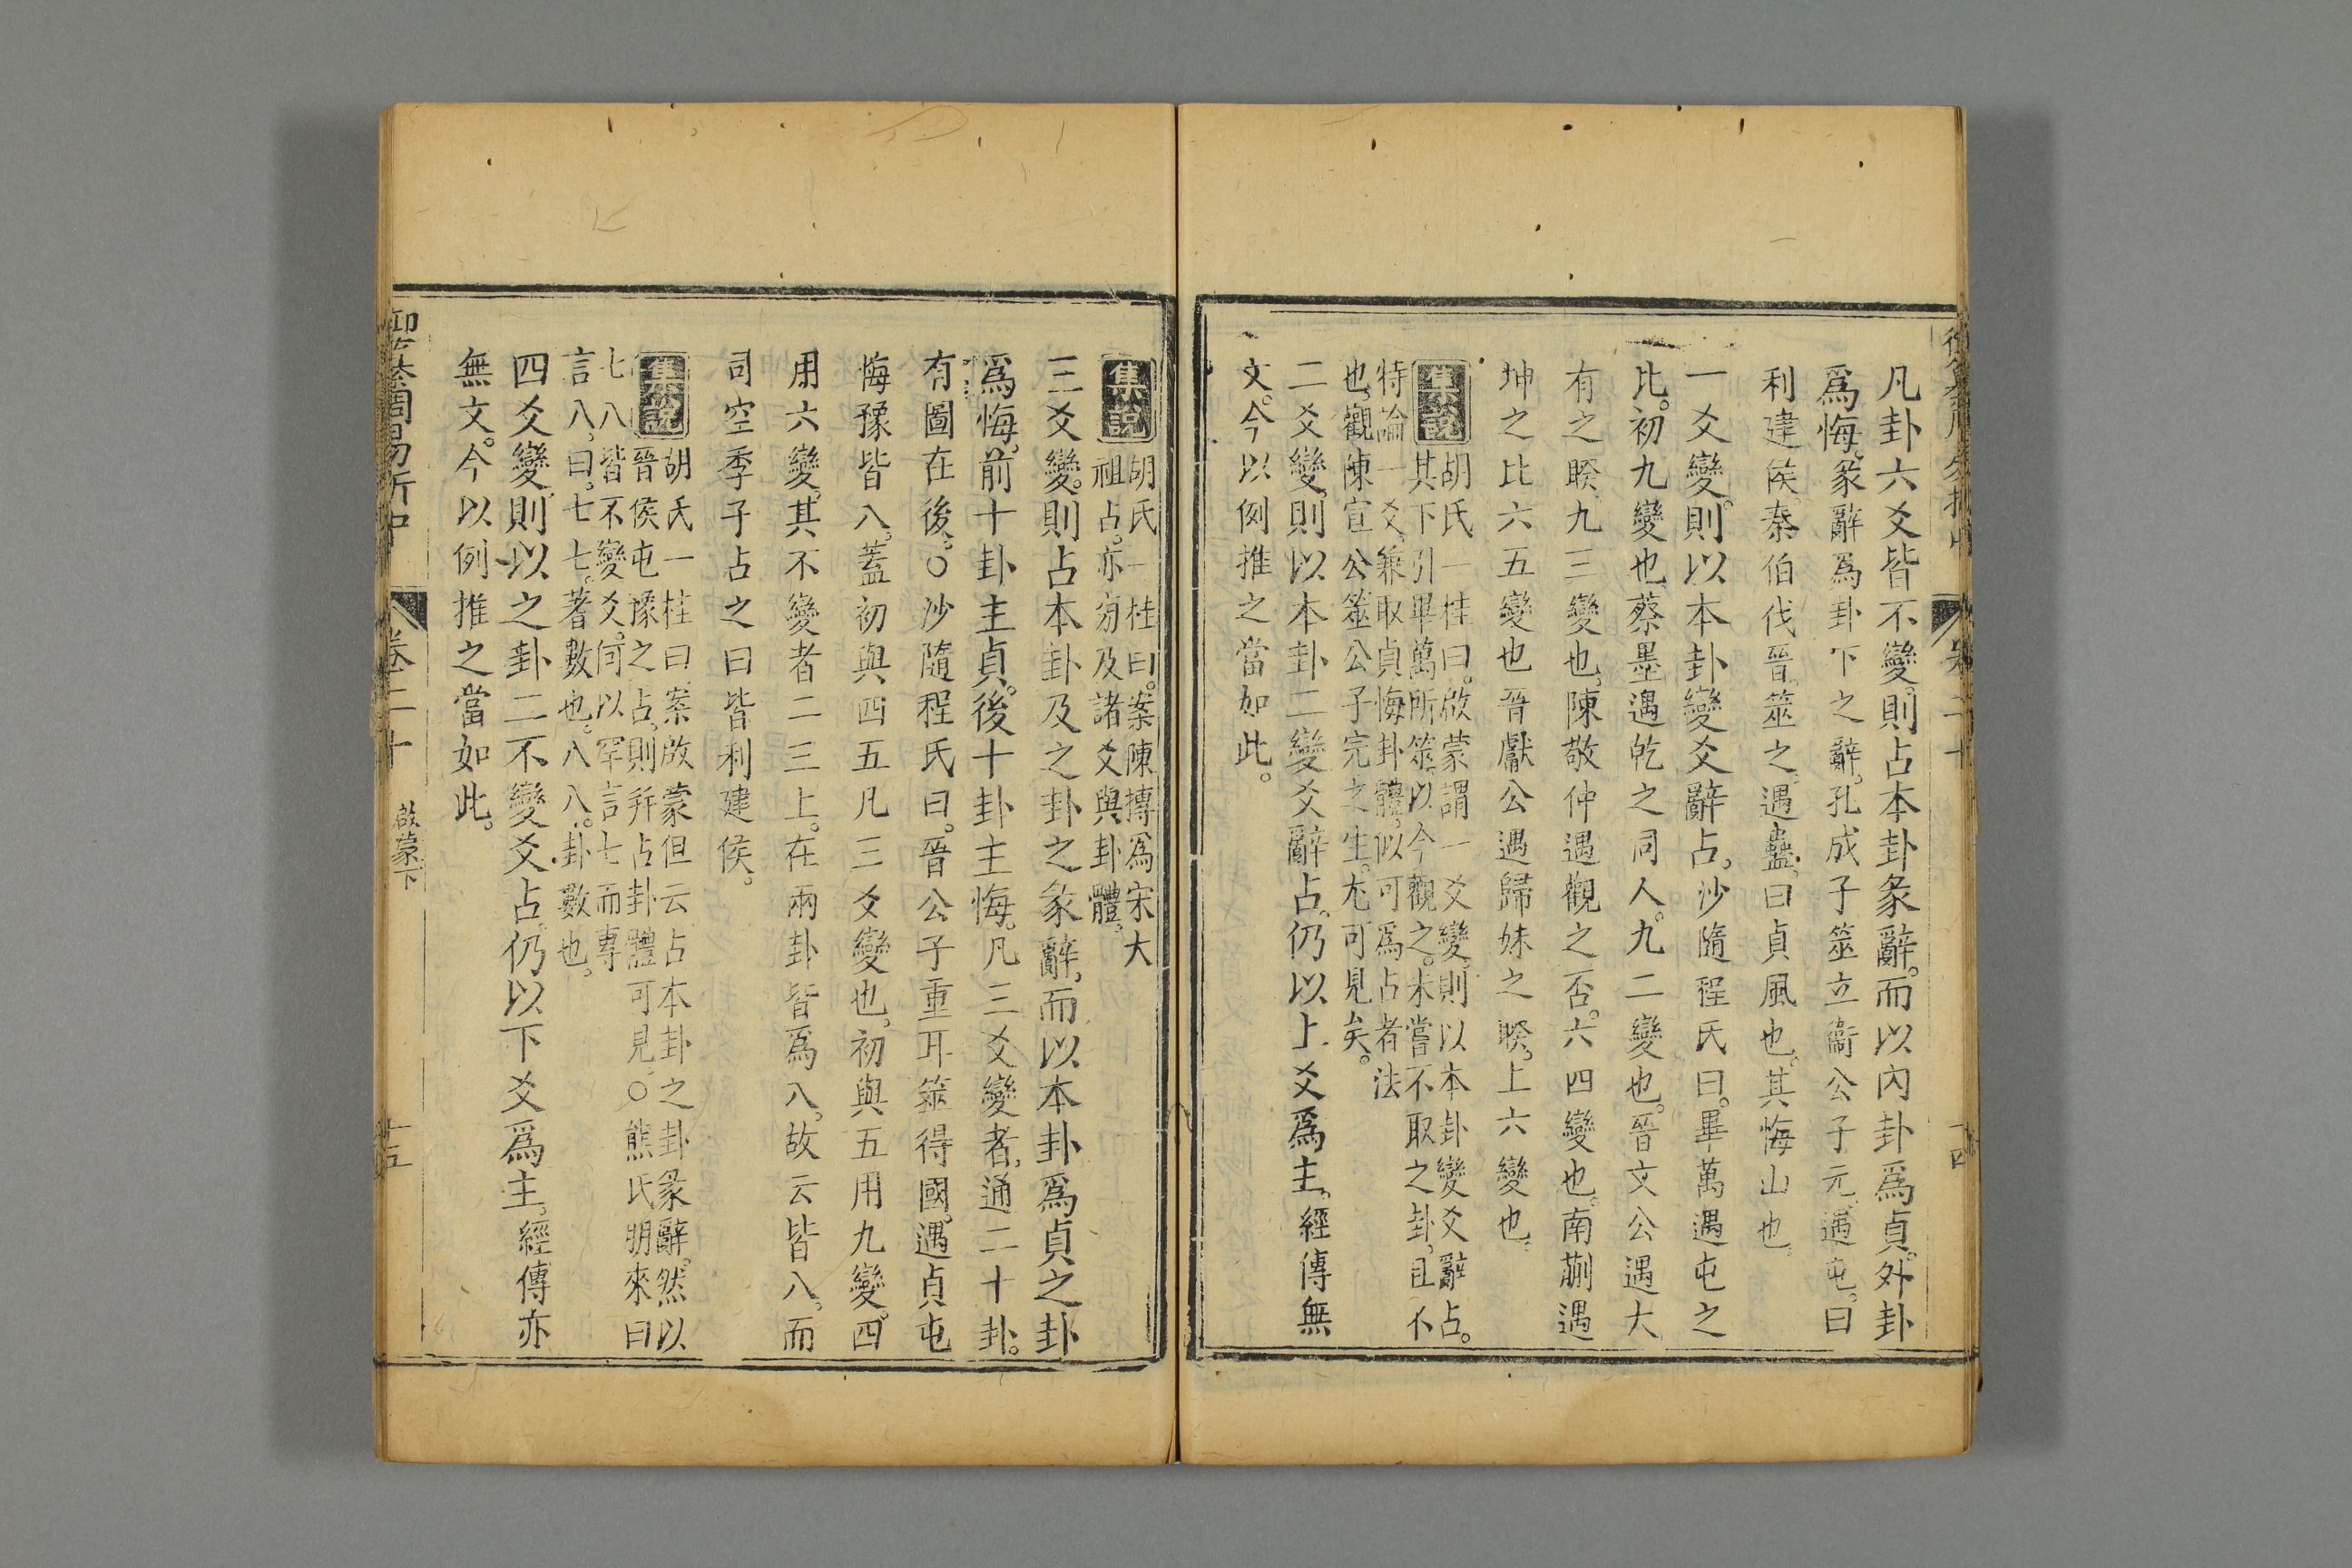 凡卦六爻皆不變則占本卦彖辭而以內卦爲貞外卦
爲悔彖辭爲卦下之辭孔成子筮立衞公子元遇屯曰
利建侯秦伯伐晉筮之遇蠱曰貞風也其悔山也
一爻變則以本卦變爻辭占沙隨程氏曰畢萬遇屯之
比初九變也蔡墨遇乾之同人九二變也晉文公遇大
有之睽九三變也陳敬仲遇觀之否六四變也南蒯遇
坤之比六五變也晉獻公遇歸妹之睽上六變也
集說
胡氏一桂曰啟蒙謂一爻變則以本卦變爻辭占
其下引畢萬所筮以今觀之未嘗不取之卦且不
特論一爻兼取貞悔卦體似可爲占者法
也觀陳宣公筮公子完之生尤可見矣
二爻變則以本卦二變爻辭占仍以上爻爲主經傳無
文今以例推之當如此
集說
胡氏一桂曰案陳摶爲宋大
祖占亦旁及諸爻與卦體
三爻變則占本卦及之卦之彖辭而以本卦爲貞之卦
爲悔前十卦主貞後十卦主悔凡三爻變者通二十卦
有圖在後〇沙隨程氏曰晉公子重耳筮得國遇貞屯
悔豫皆八蓋初與四五凡三爻變也初與五用九變四
用六變其不變者二三上在兩卦皆爲八故云皆八而
司空季子占之曰皆利建侯
集說
胡氏一桂曰案啟蒙但云占本卦之卦彖辭然以
晉侯屯豫之占則并占卦體可見〇熊氏朋來曰
七八皆不變爻何以罕言七而專
言八曰七七蓍數也八八卦數也
四爻變則以之卦二不變爻占仍以下爻爲主經傳亦
無文今以例推之當如此
御纂周易折中
卷二十
啟蒙下
十五